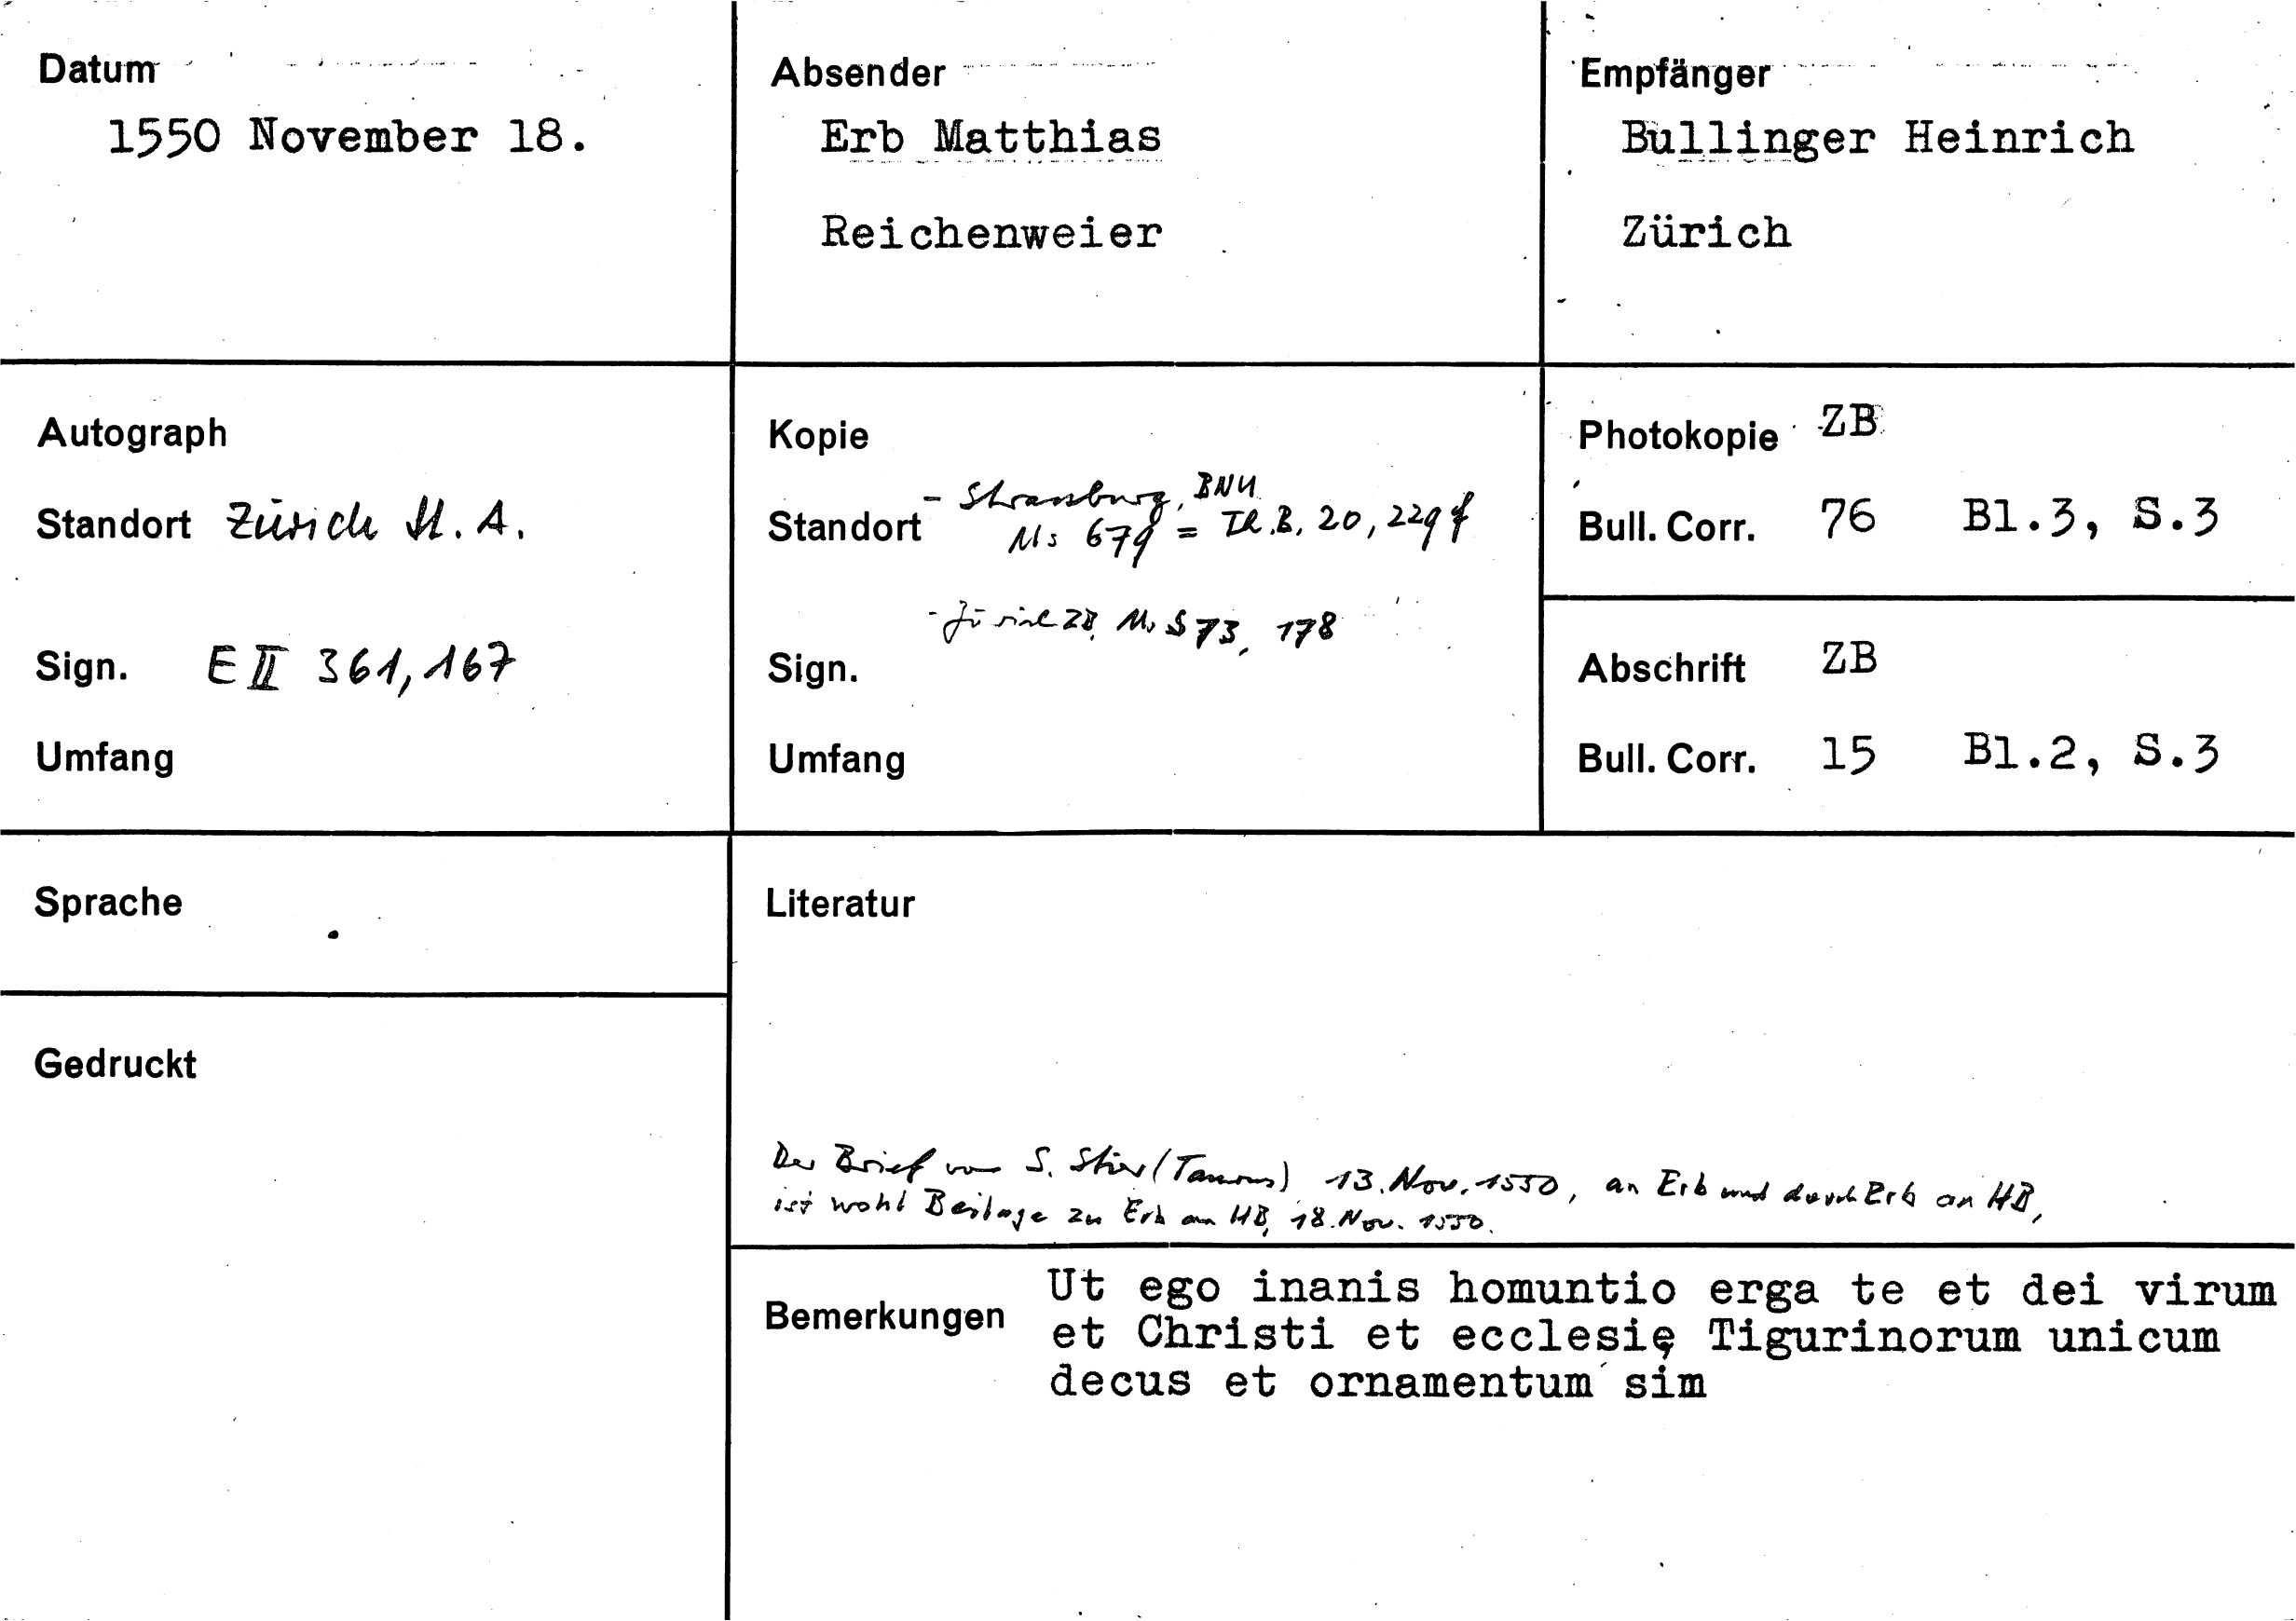 Datum
1550 November 18.
Absender
Erb Matthias
Reichenweier
Empfänger
Bullinger Heinrich
Zürich
Autograph
Standort Zürich St. A.
Sign. E II 361, 167
Umfang
Kopie
Standort - Strassburg, BNU
Ms 679 = Th.B. 20, 229 f
- Zürich ZB, Ms S 73, 178
Sign.
Umfang
Photokopie ZB
Bull. Corr. 76 Bl.3, S.3
Abschrift ZB
Bull. Corr. 15 Bl.2, S.3
Sprache
Gedruckt
Literatur
Der Brief von S. Stier 13. Nov. 1550, an Erb und durch Erb an HB,
ist wohl Beilage zu Erb an HB, 18. Nov. 1550.
Bemerkungen
Ut ego inanis homuntio erga te et dei virum
et Christi et ecclesię Tigurinorum unicum
decus et ornamentum sim